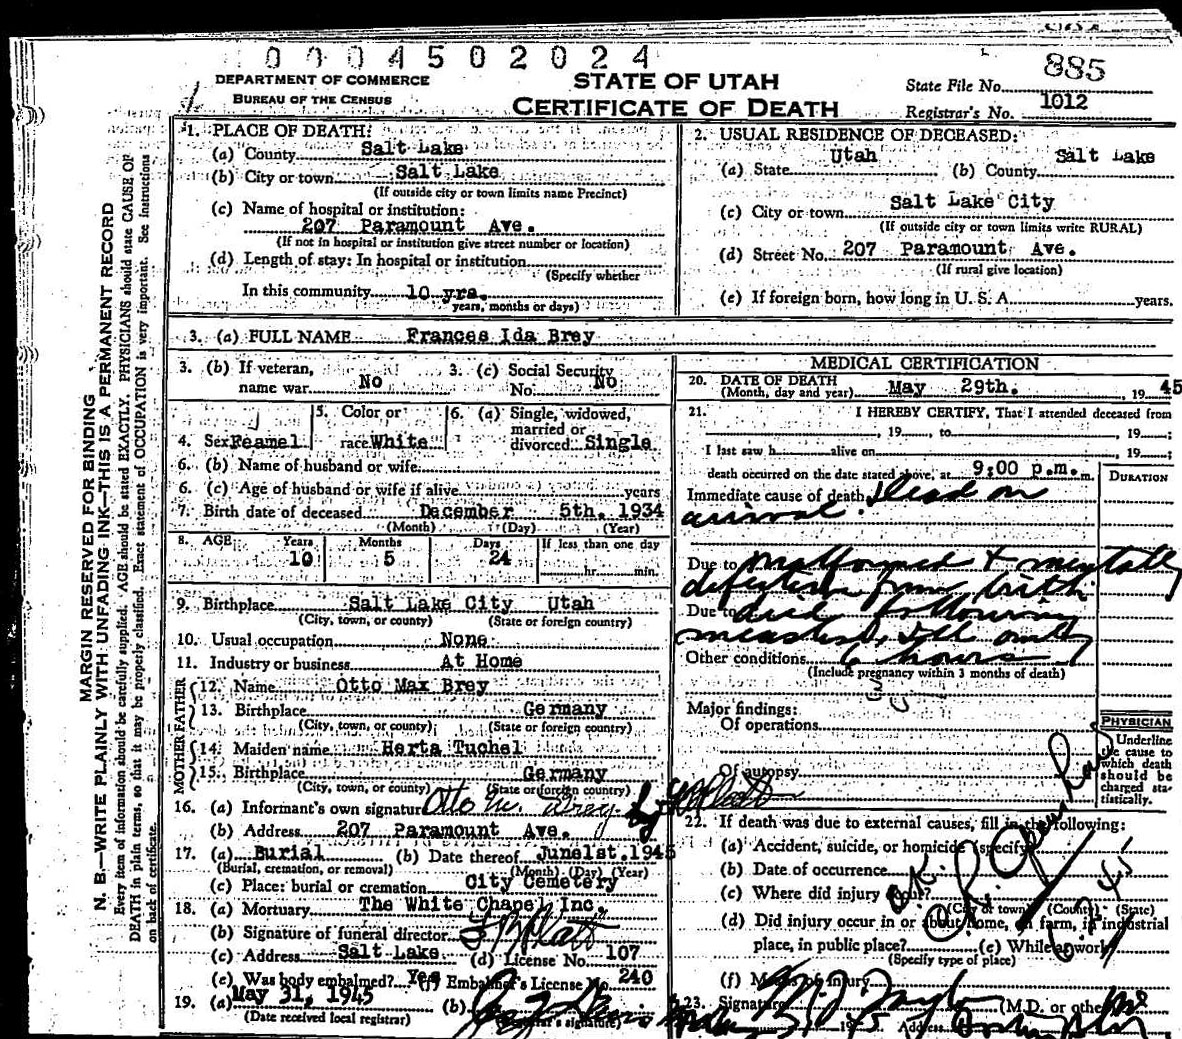 0004502024
885
DEPARTMENT OF COMMERCE
BUREAU OF THE CENSUS
STATE OF UTAH
CERTIFICATE OF DEATH
State File No.
Registrar's No. 1012
MARGIN RESERVED FOR BINDING
N. B.—WRITE PLAINLY WITH UNFADING INK—THIS IS A PERMANENT RECORD
Every item of information should be carefully supplied. AGE should be stated EXACTLY. PHYSICIANS should state CAUSE OF
DEATH in plain terms, so that it may be properly classified. Exact statement of OCCUPATION is very important. See instructions
on back of certificate.
1. PLACE OF DEATH:
(a) County Salt Lake
(b) City or town Salt Lake
(If outside city or town limits name Precinct)
(c) Name of hospital or institution:
207 Paramount Ave.
(If not in hospital or institution give street number or location)
(d) Length of stay: In hospital or institution
(Specify whether
In this community 10 yrs.
years, months or days)
2. USUAL RESIDENCE OF DECEASED:
(a) State Utah (b) County Salt Lake
(c) City or town Salt Lake City
(If outside city or town limits write RURAL)
(d) Street No. 207 Paramount Ave.
(If rural give location)
(e) If foreign born, how long in U. S. A. years.
3. (a) FULL NAME Frances Ida Brey
3. (b) If veteran, name war No
3. (c) Social Security No. No
4. Sex Feamel
5. Color or race White
6. (a) Single, widowed, married or divorced Single
6. (b) Name of husband or wife
6. (c) Age of husband or wife if alive years
7. Birth date of deceased December 5th. 1934
(Month) (Day) (Year)
8. AGE Years Months Days If less than one day
10 5 24 hr. min.
9. Birthplace Salt Lake City Utah
(City, town, or county) (State or foreign country)
10. Usual occupation None
11. Industry or business At Home
FATHER
12. Name Otto Max Brey
13. Birthplace Germany
(City, town, or county) (State or foreign country)
MOTHER
14. Maiden name Herta Tuchel
15. Birthplace Germany
(City, town, or county) (State or foreign country)
16. (a) Informant's own signature Otto M. Brey by
(b) Address 207 Paramount Ave.
17. (a) Burial (b) Date thereof June1st.1945
(Burial, cremation, or removal) (Month) (Day) (Year)
(c) Place: burial or cremation City Cemetery
18. (a) Mortuary The White Chapel Inc.
(b) Signature of funeral director
(c) Address Salt Lake (d) License No. 107
(e) Was body embalmed? Yes (f) Embalmer's License No. 240
19. (a) May 31, 1945 (b)
(Date received local registrar) (Registrar's signature)
MEDICAL CERTIFICATION
20. DATE OF DEATH May 29th. , 19 45
(Month, day and year)
21. I HEREBY CERTIFY, That I attended deceased from
, 19 , to , 19 ;
I last saw h alive on , 19 ;
death occurred on the date stated above, at 9:00 p.m. m.
DURATION
Immediate cause of death Dead on
arrival.
Due to malformed + mentally
defective from birth
Due to died following
measles, ill only
Other conditions 6 hours
(Include pregnancy within 3 months of death)
Major findings:
Of operations
Of autopsy
PHYSICIAN
Underline the cause to which death should be charged statistically.
22. If death was due to external causes, fill in the following:
(a) Accident, suicide, or homicide (specify)
(b) Date of occurrence
(c) Where did injury occur?
(City or town) (County) (State)
(d) Did injury occur in or about home, on farm, in industrial
place, in public place? (e) While at work?
(Specify type of place)
(f) Means of injury
O.K.
23. Signature (M.D. or other)
Address